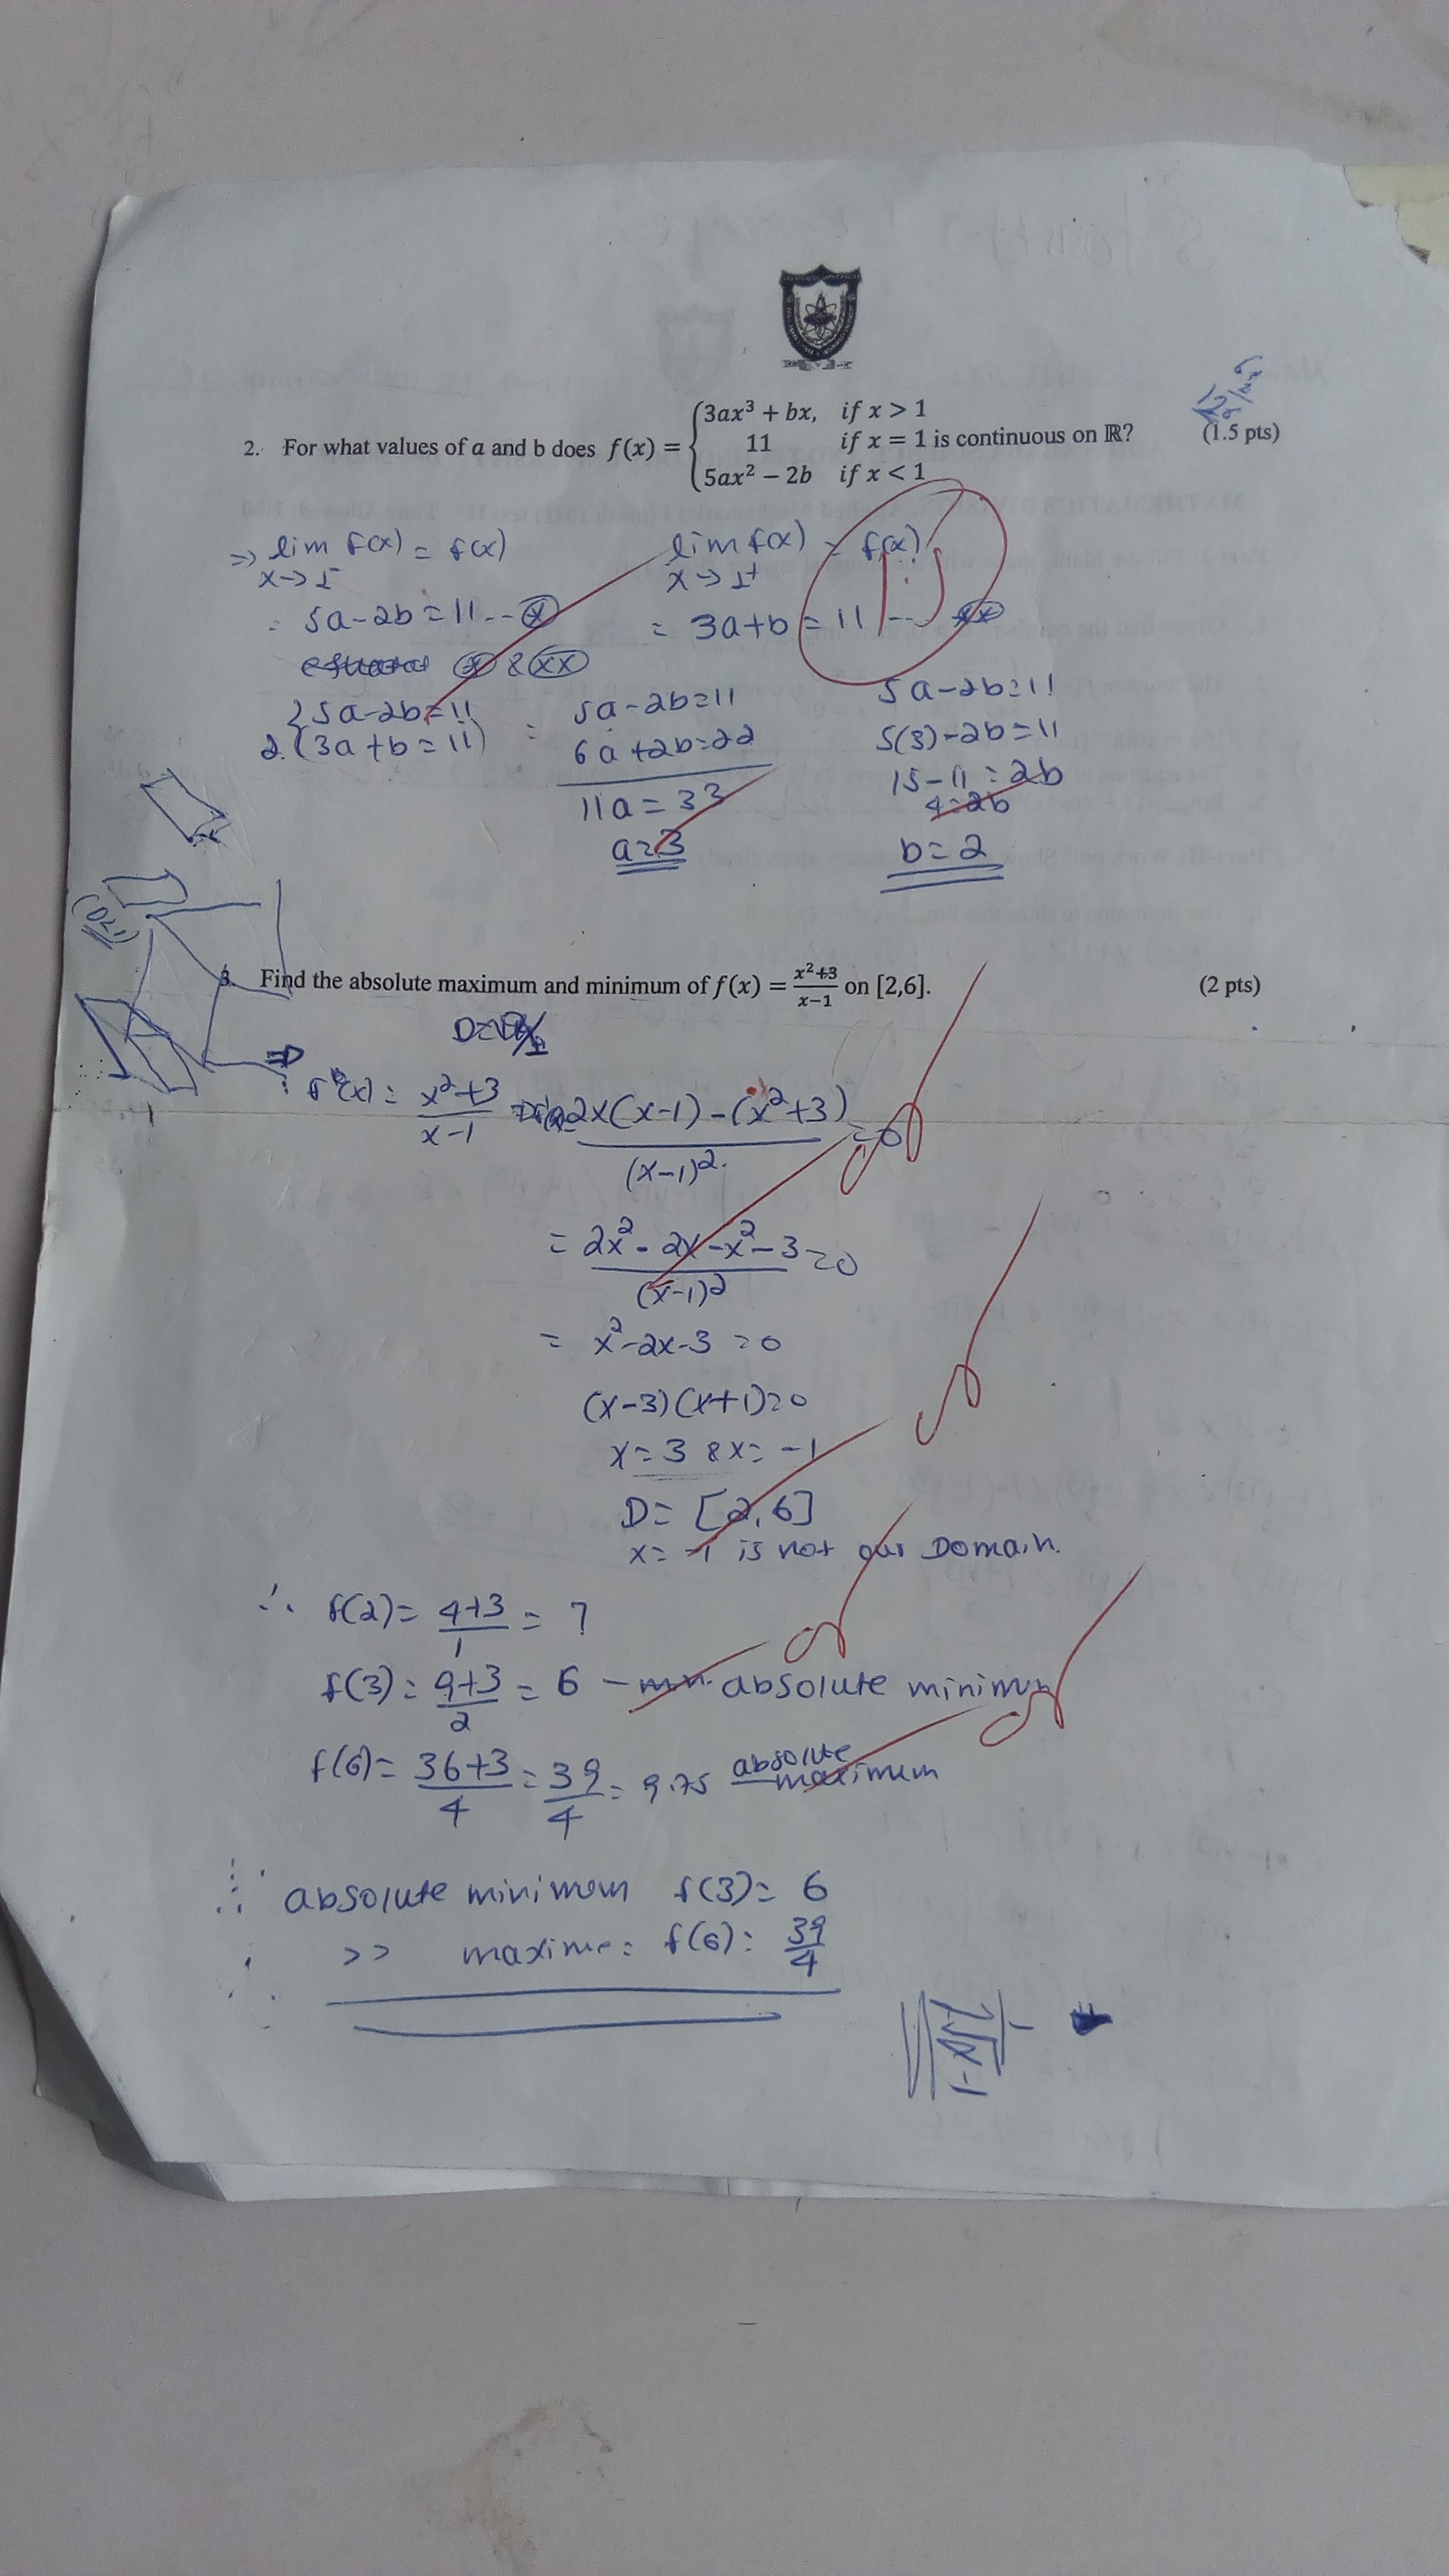 2. For what values of a and b does f(x) = { 3ax³ + bx, if x > 1
11 if x = 1 is continuous on ℝ? (1.5 pts)
5ax² − 2b if x < 1
⇒ lim f(x) = f(x) lim f(x) = f(x)
x→1⁻ x→1⁺
= 5a-2b=11 --(*) = 3a+b=11 -- (**)
(*) & (**)
{5a-2b=11 = 5a-2b=11 5a-2b=11
2.(3a+b=11) 6a+2b=22 5(3)-2b=11
11a=33 15-11=2b
4=2b
a=3 b=2
3. Find the absolute maximum and minimum of f(x) = (x²+3)/(x−1) on [2,6]. (2 pts)
⇒
f(x) = (x²+3)/(x-1) 2x(x-1)-(x²+3)/(x-1)² =0
= (2x²-2x-x²-3)/(x-1)² =0
= x²-2x-3=0
(x-3)(x+1)=0
x=3 & x=-1
D=[2,6]
x=-1 is not our Domain.
∴ f(2)= (4+3)/1 = 7
f(3)= (9+3)/2 = 6 - absolute minimum
f(6)= (36+3)/4 = 39/4 = 9.75 absolute maximum
∴ absolute minimum f(3)= 6
>> maxime= f(6)= 39/4